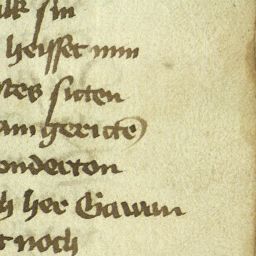 alk sin
heisset nim
stes sitten
am gericte
onderton
h her Gawan
t noch